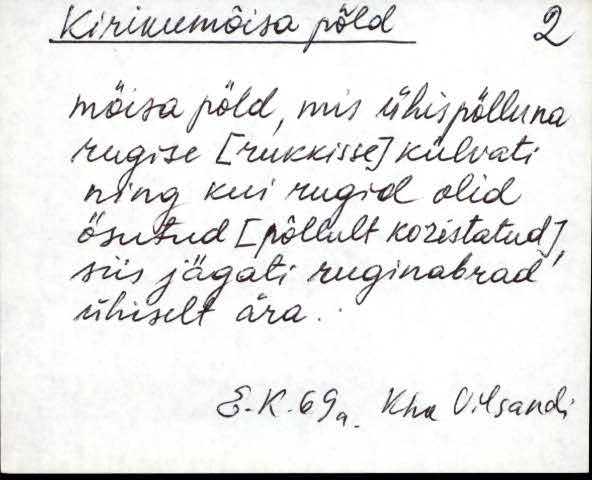 Kirikumõisa põld 2
mõisa põld, mis ühispõlluna
rugise [rukkisse] külvati
ning kui rugid olid
õsutud [põllult koristatud],
siis jägati ruginabrad
ühiselt ära.
E.K. 69a. Kha Vilsandi